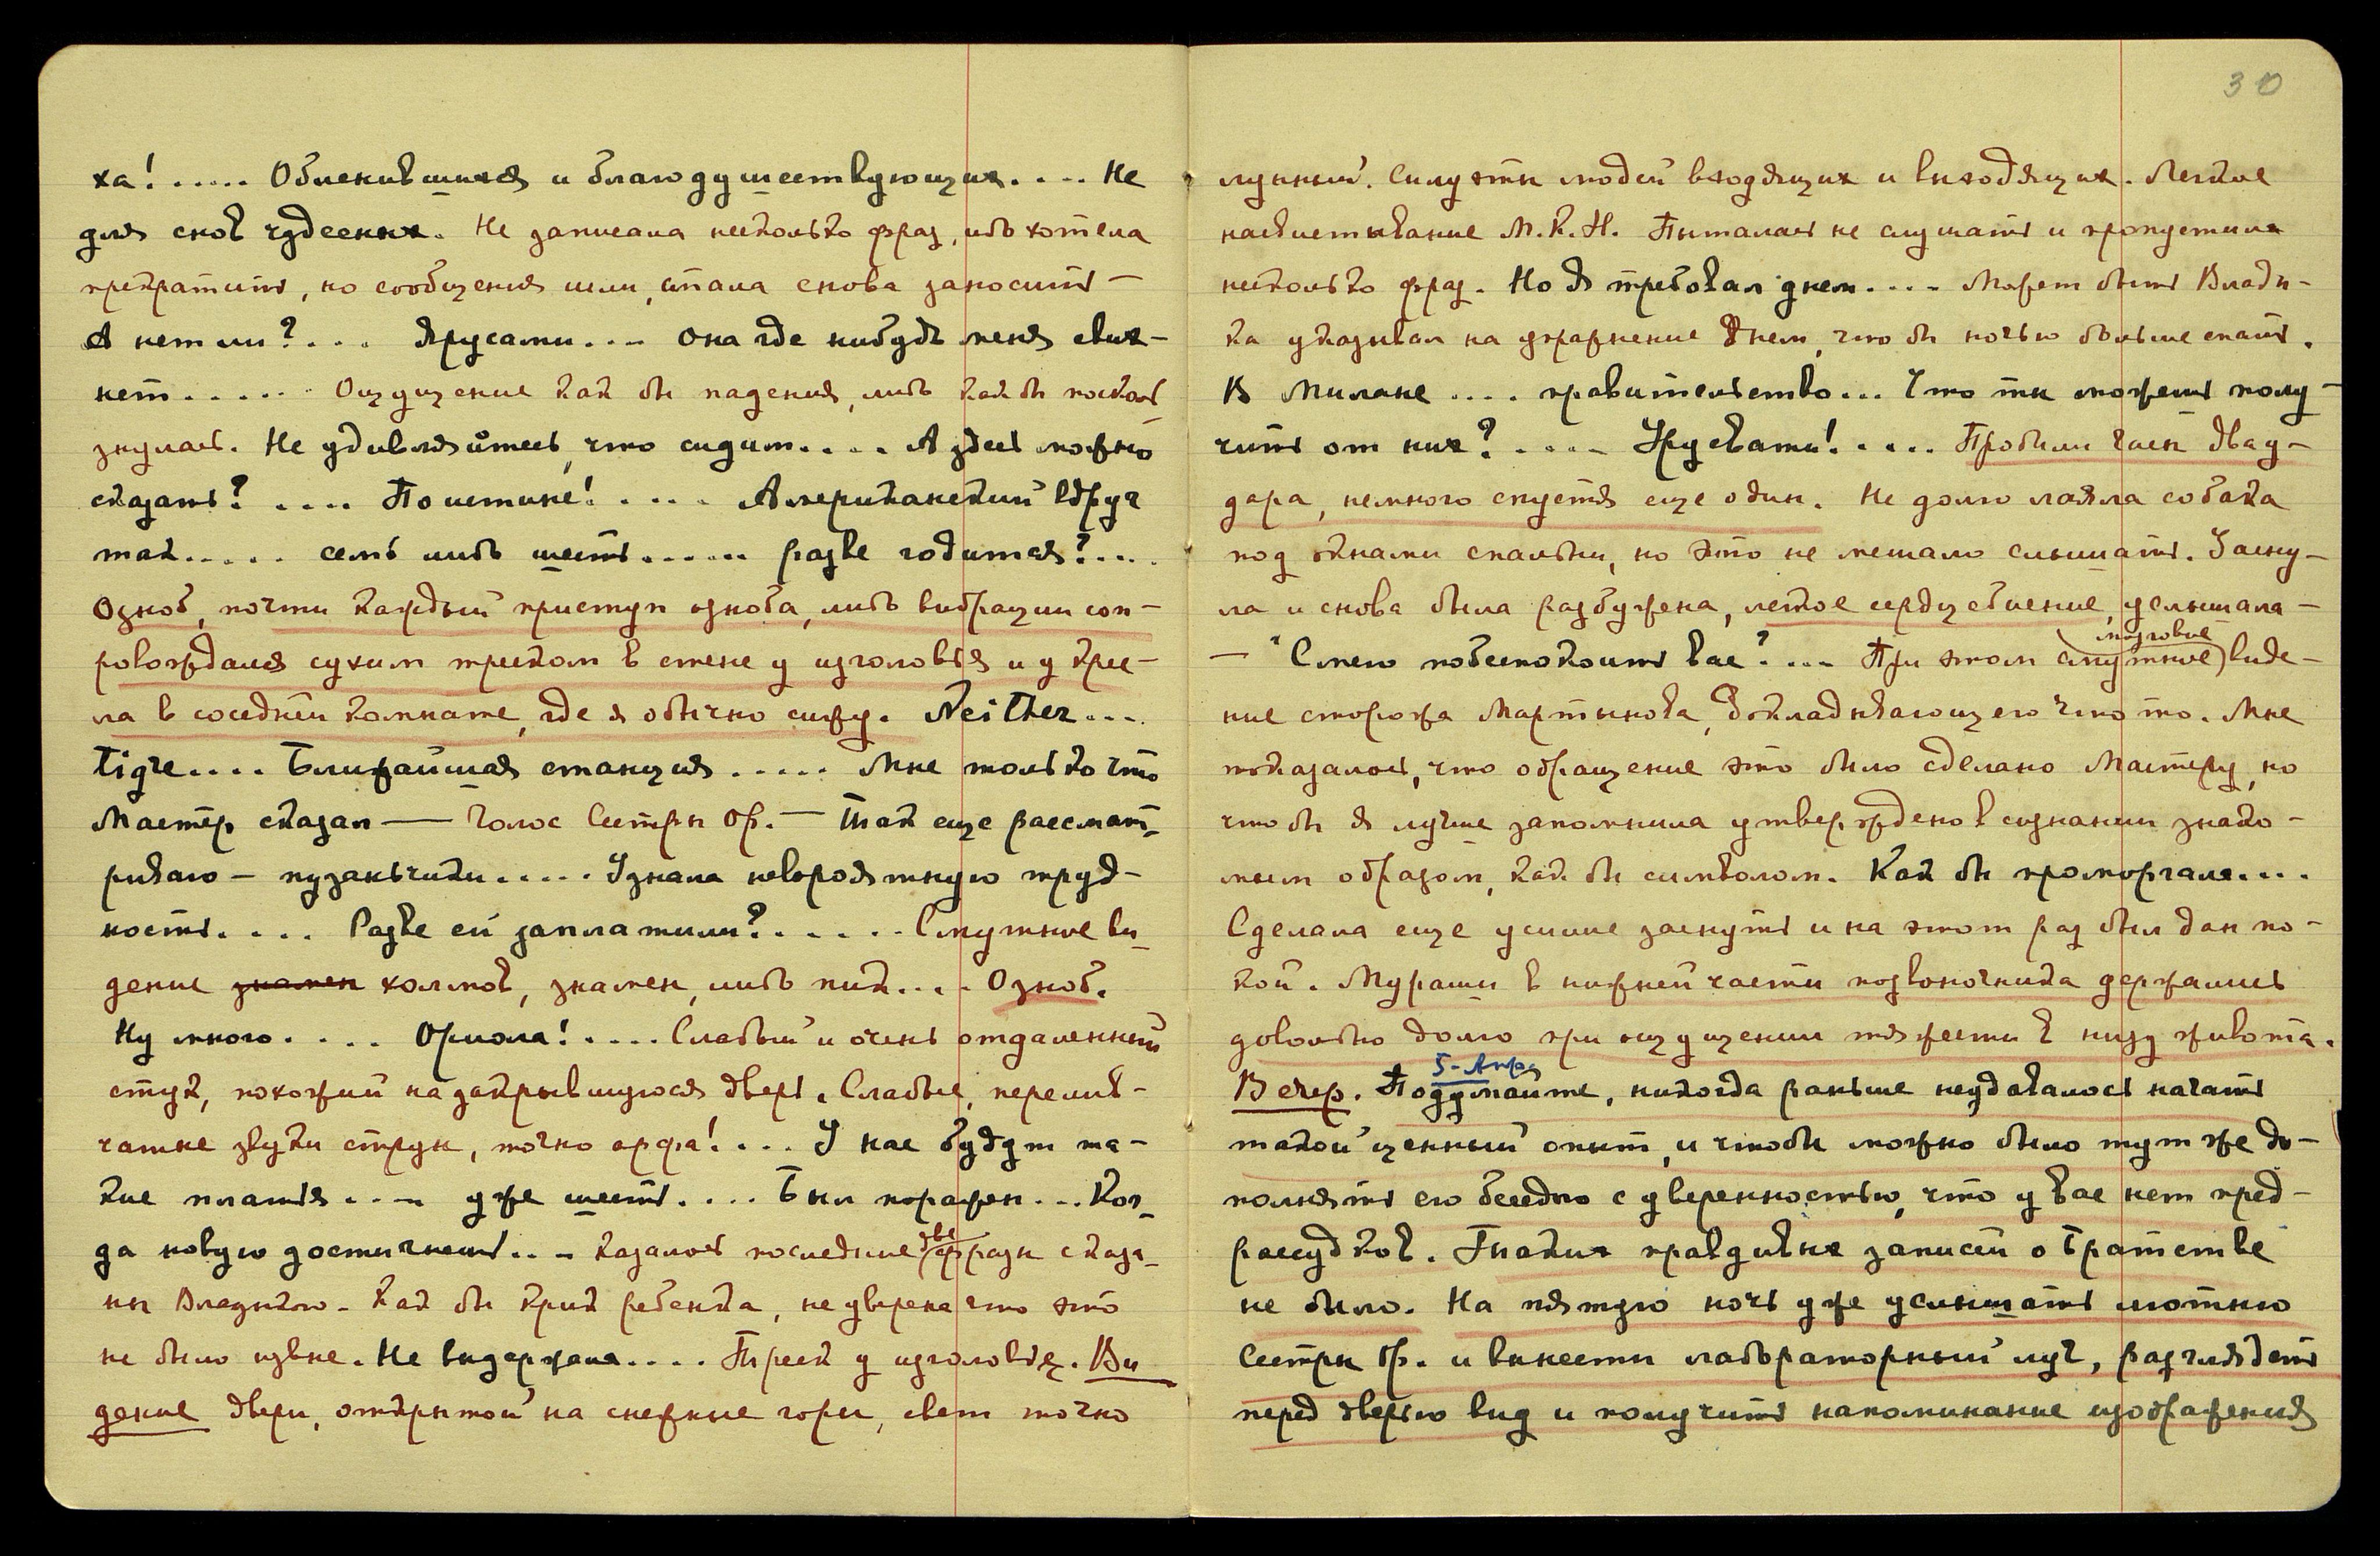 ха! ..... Обленившихся и благодушествующих.... Не
для снов чудесных. Не записала несколько фраз, ибо хотела
прекратить, но сообщения шли, стала снова заносить —
А нет ли?.... Ярусами.... Она где нибудь меня свих-
нет..... Ощущение как бы падения, либо как бы
знулась. Не удивляйтесь, что сидит.... А здесь можно
сказать? .... Поистине! .... Американский вдруг
так..... семь либо шесть...... разве годится?....
Озноб, почти каждый приступ озноба, либо вибрации соп-
ровождался сухим треском в стене у изголовья и у крес-
ла в соседней комнате, где я обычно сижу. Neither....
Tigre.... Ближайшая станция ..... Мне только что
Мастер сказал — Голос Сестры Ор. — Так еще рассмат-
риваю — пузанчики ..... Узнала невероятную труд-
ность.... Разве ей заплатили?...... Смутное ви-
дение знамен холмов, знамен, либо пик.... Озноб.
Ну много.... Ориола! .... Слабый и очень отдаленный
стук, похожий на закрывшуюся дверь. Слабые, перелив-
чатые звуки струн, точно арфа! ... У нас будут та-
кие платья .... уже шесть.... Был поражен... Ког-
да новую достигнешь... Казалось последние две фразы сказа-
ны Владыкою. Как бы крик ребенка, не уверена что это
не было извне. Не выдержала.... Треск у изголовья. Ви
дение двери, открытой на снежные горы, свет точно
30
лунный. Силуэты людей входящих и выходящих. Легкое
насвистывание М.К.Н. Пыталась не слушать и пропустила
несколько фраз. Но я требовал днем.... Может быть Влады-
ка указывал на упражнение днем, что бы ночью больше спать.
В Милане .... правительство... Что ты можешь полу-
чить от них? .... Урусвати! .... Пробили часы два уд-
дара, немного спустя еще один. Не долго лаяла собака
под окнами спальни, но это не мешало слышать. Засну-
ла и снова была разбужена, легкое сердцебиение, услышала —
— "Смею побеспокоить вас? .... При этом смутное мозговое виде-
ние сторожа Мартынова, докладывающего что то. Мне
показалось, что обращение это было сделано Мастеру, но
что бы я лучше запомнила утверждено в сознании знако-
мым образом, как бы символом. Как бы проморгала....
Сделала еще усилие заснуть и на этот раз был дан по-
кой. Мураши в нижней части позвоночника держались
довольно долго при ощущении тяжести в низу живота.
5-Апр
Вечер. Подумайте, никогда раньше неудавалось начать
такой ценный опыт, и чтобы можно было тут же до-
полнять его беседою с уверенностью, что у вас нет пред-
рассудков. Таких правдивых записей о Братстве
не было. На пятую ночь уже услышать лютню
Сестры Ор. и вынести лабораторный луч, разглядеть
перед дверью вид и получить напоминание изображения